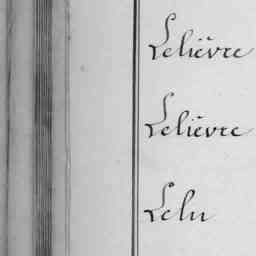 Lelièvre
Lelièvre
Lelu